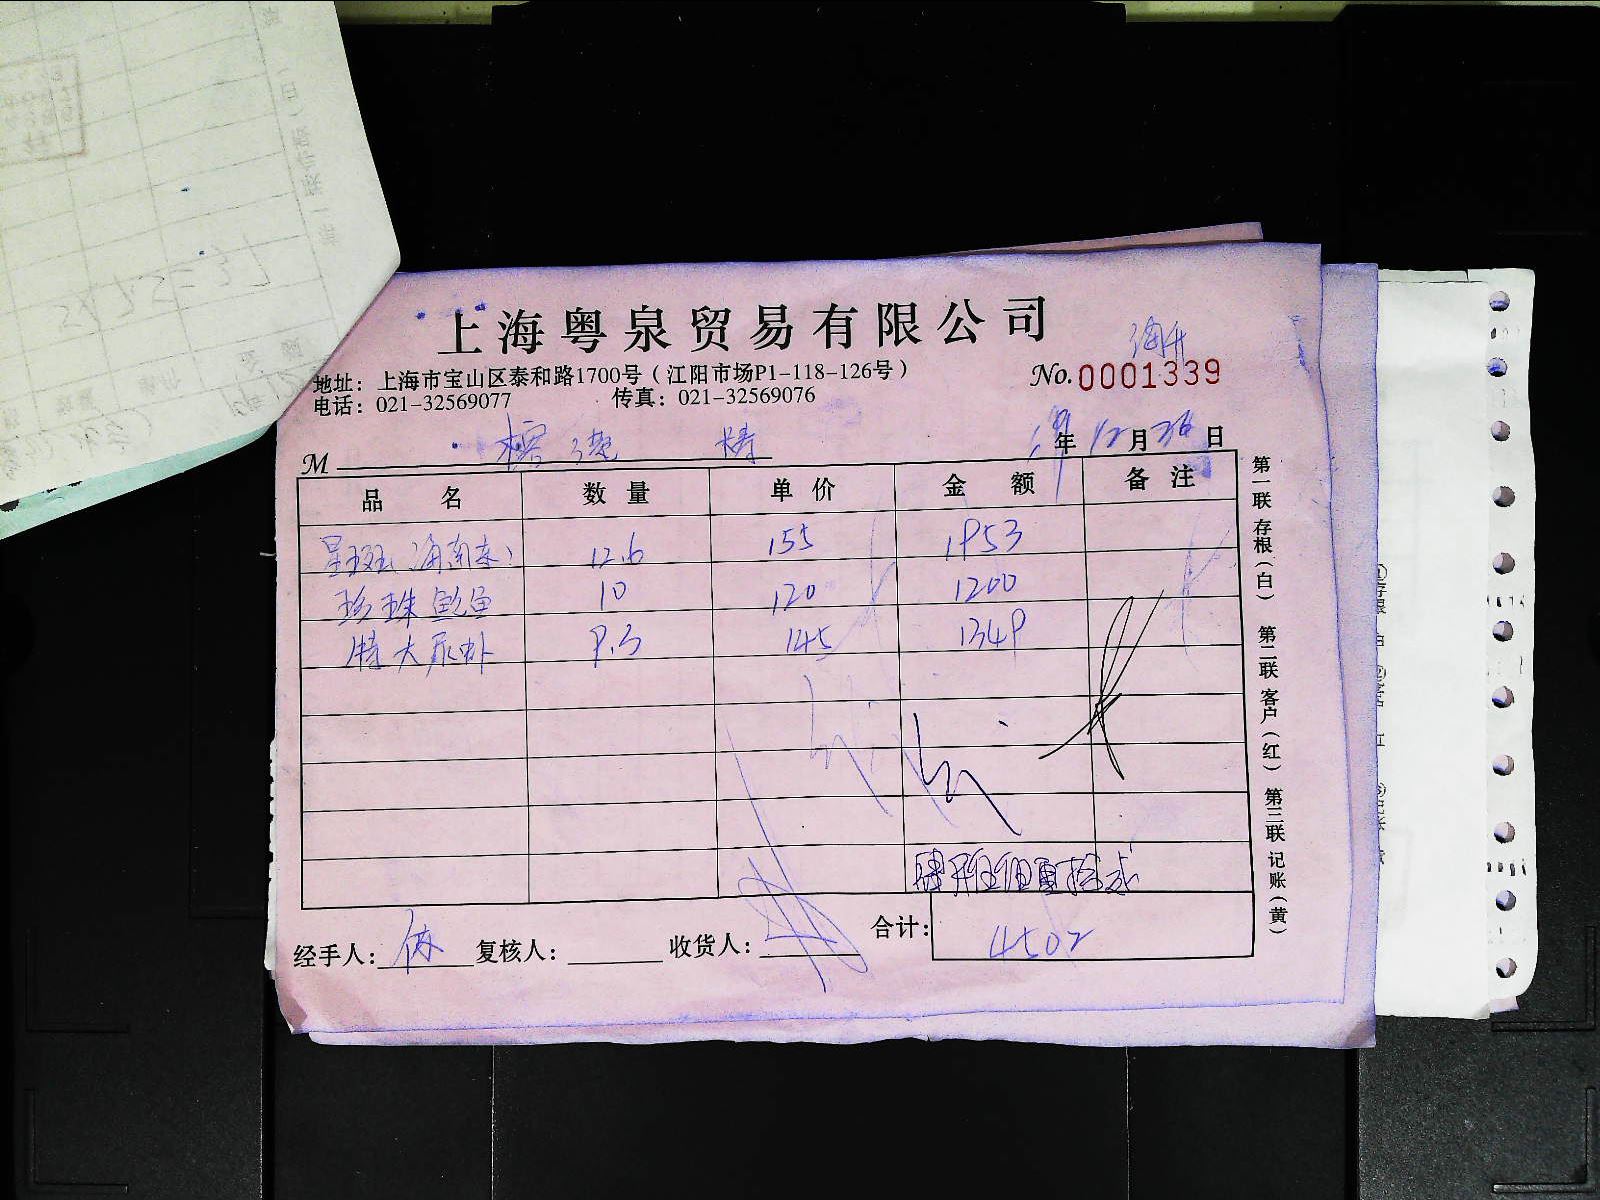 上海粤泉贸易有限公司
地址：上海市宝山区泰和路1700号（江阳市场P1-118-126号）
No.0001339
电话：021-32569077 传真：021-32569076
M 榕 年12月26日
品名 数量 单价 金额 备注
星斑（海南东） 12.6 155 1953
珍珠鲍鱼 10 120 1200
特大尿虾 9.3 145 1349
合计：4502
经手人： 复核人： 收货人：
第一联存根（白） 第二联客户（红） 第三联记账（黄）